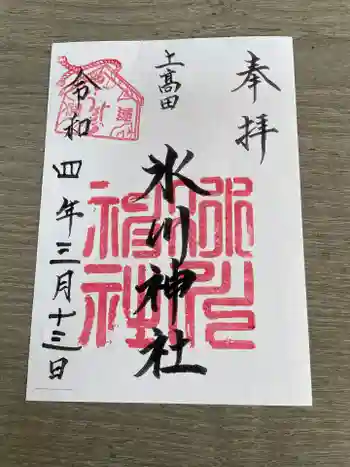 奉拝
上高田
氷川神社
令和四年三月十三日